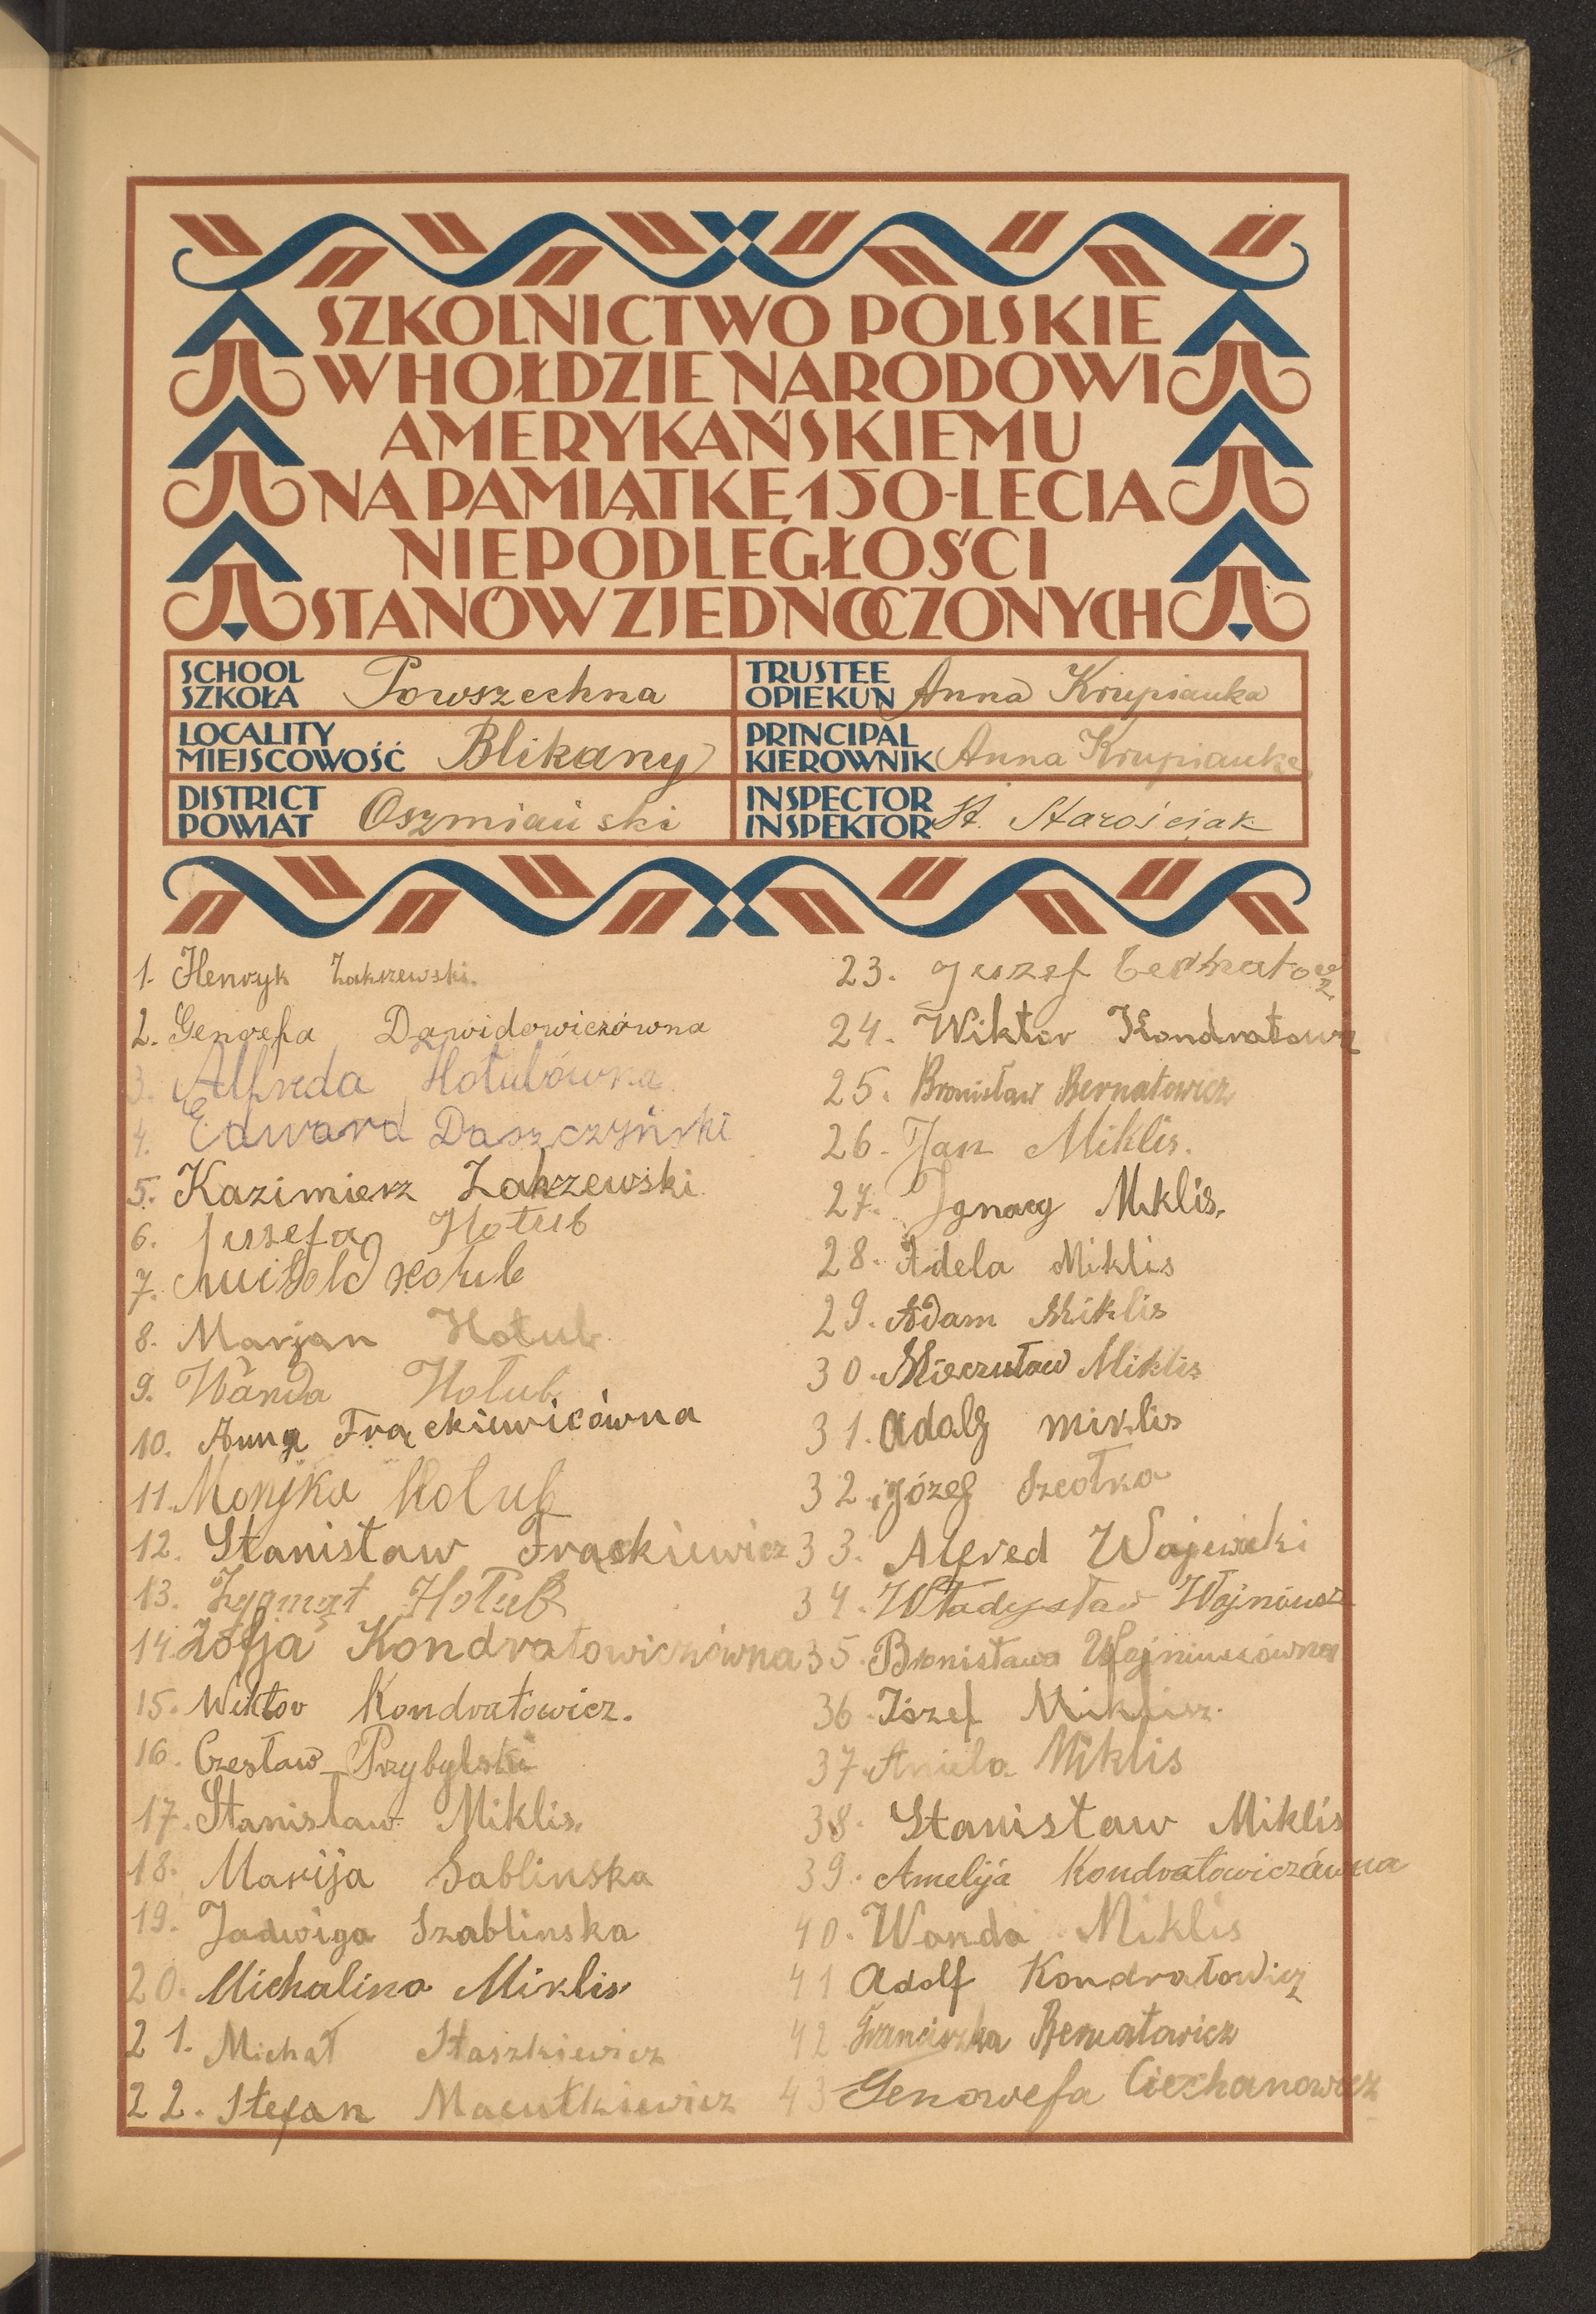 SZKOLNICTWO POLSKIE
W HOŁDZIE NARODOWI
AMERYKAŃSKIEMU
NA PAMIĄTKĘ 150-LECIA
NIEPODLEGŁOŚCI
STANÓW ZJEDNOCZONYCH
SCHOOL
SZKOŁA Powszechna
TRUSTEE
OPIEKUN Anna Krupianka
LOCALITY
MIEJSCOWOŚĆ Blikany
PRINCIPAL
KIEROWNIK Anna Krupianka
DISTRICT
POWIAT Oszmiański
INSPECTOR
INSPEKTOR St. Starościak
1. Henryk Zakrzewski.
2. Genoefa Dawidowiczówna
3. Alfreda Hołubówna
4. Edward Daszczyński
5. Kazimierz Zakrzewski
6. Juzefa Hołub
7. Hołub
8. Marjan Hołub
9. Wanda Hołub
10. Anna Frąckiewicówna
11. Monjka Hołub
12. Stanisław Frackiewicz
13. Zygmąt Hołub
14. Zofja Kondratowiczówna
15. Wiktor Kondratowicz.
16. Czesław Przybylski
17. Stanisław Miklis.
18. Marija Sablinska
19. Jadwiga Szablinska
20. Michalina Miklis
21. Michał Staszkiewicz
22. Stefan Macutkiewicz
23. Juszef Bernatowz
24. Wiktor Kondratowicz
25. Bronisław Bernatowicz
26. Jan Miklis.
27. Ignacy Miklis.
28. Adela Miklis
29. Adam Miklis
30. Mieczusław Miklis
31. Adolf miklis
32. józef Szcotka
33. Alfred Wajewicki
34. Władysław Wojniusz
35. Bronisława Wojniuszówna
36. Józef Miklisz.
37. Aniela Miklis
38. Stanisław Miklis
39. Amelija Kondratowiczówna
40. Wanda Miklis
41 Adolf Kondratowicz
42 Franciszka Bernatowicz
43 Genowefa Ciechanowicz